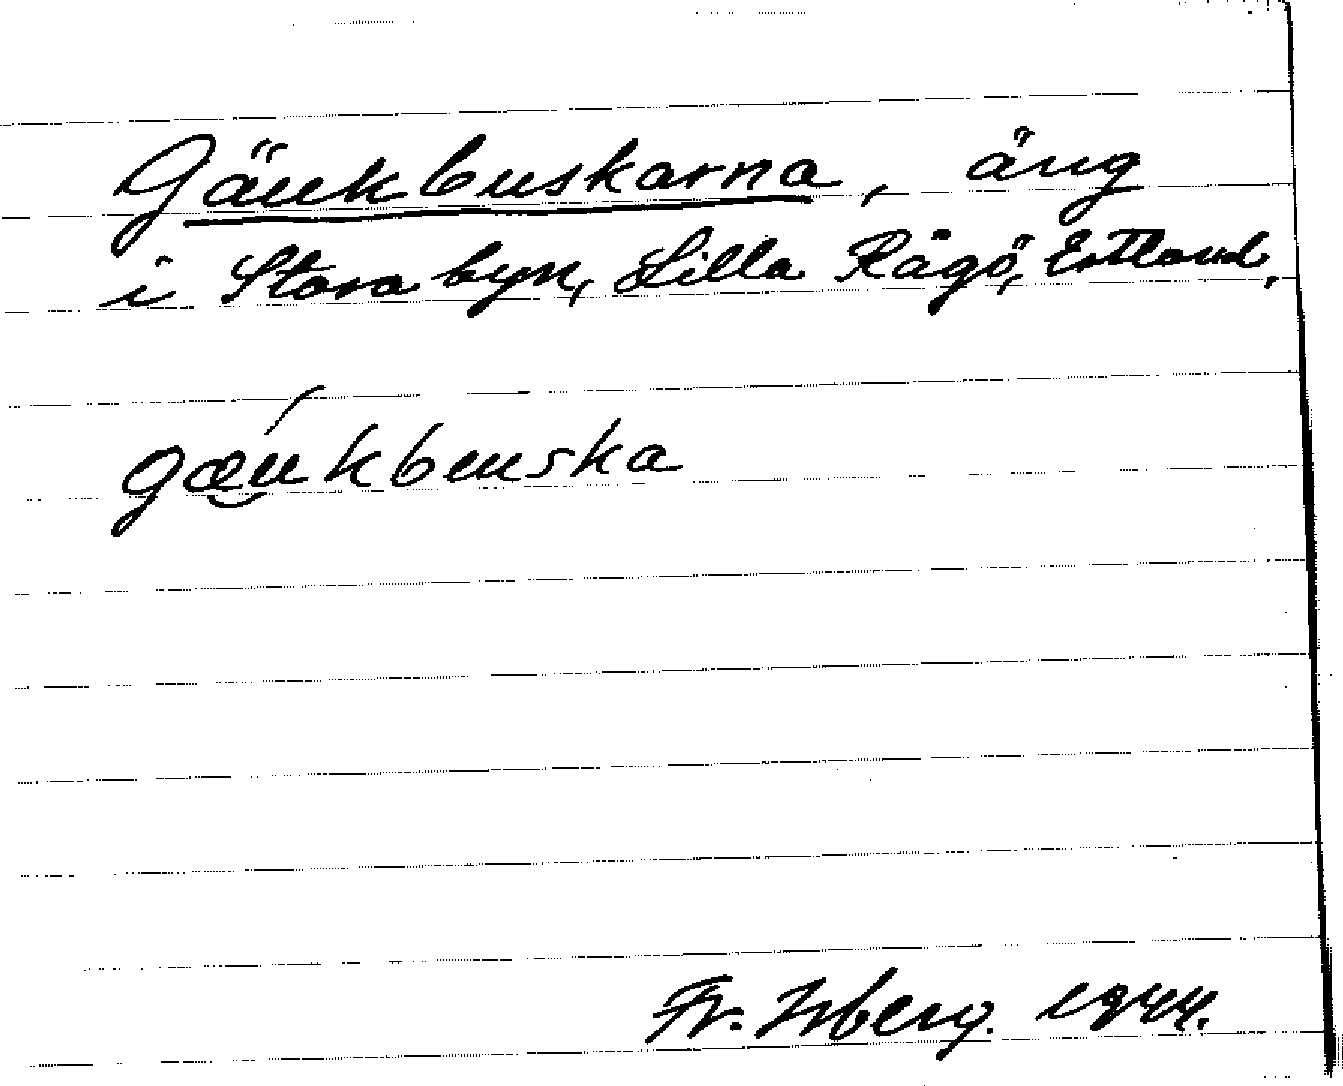 Gäukbuskarna, äng
i Stora byn, Lilla Rågö, Estland.
gæukbuska
Fr. Isberg. 1944.